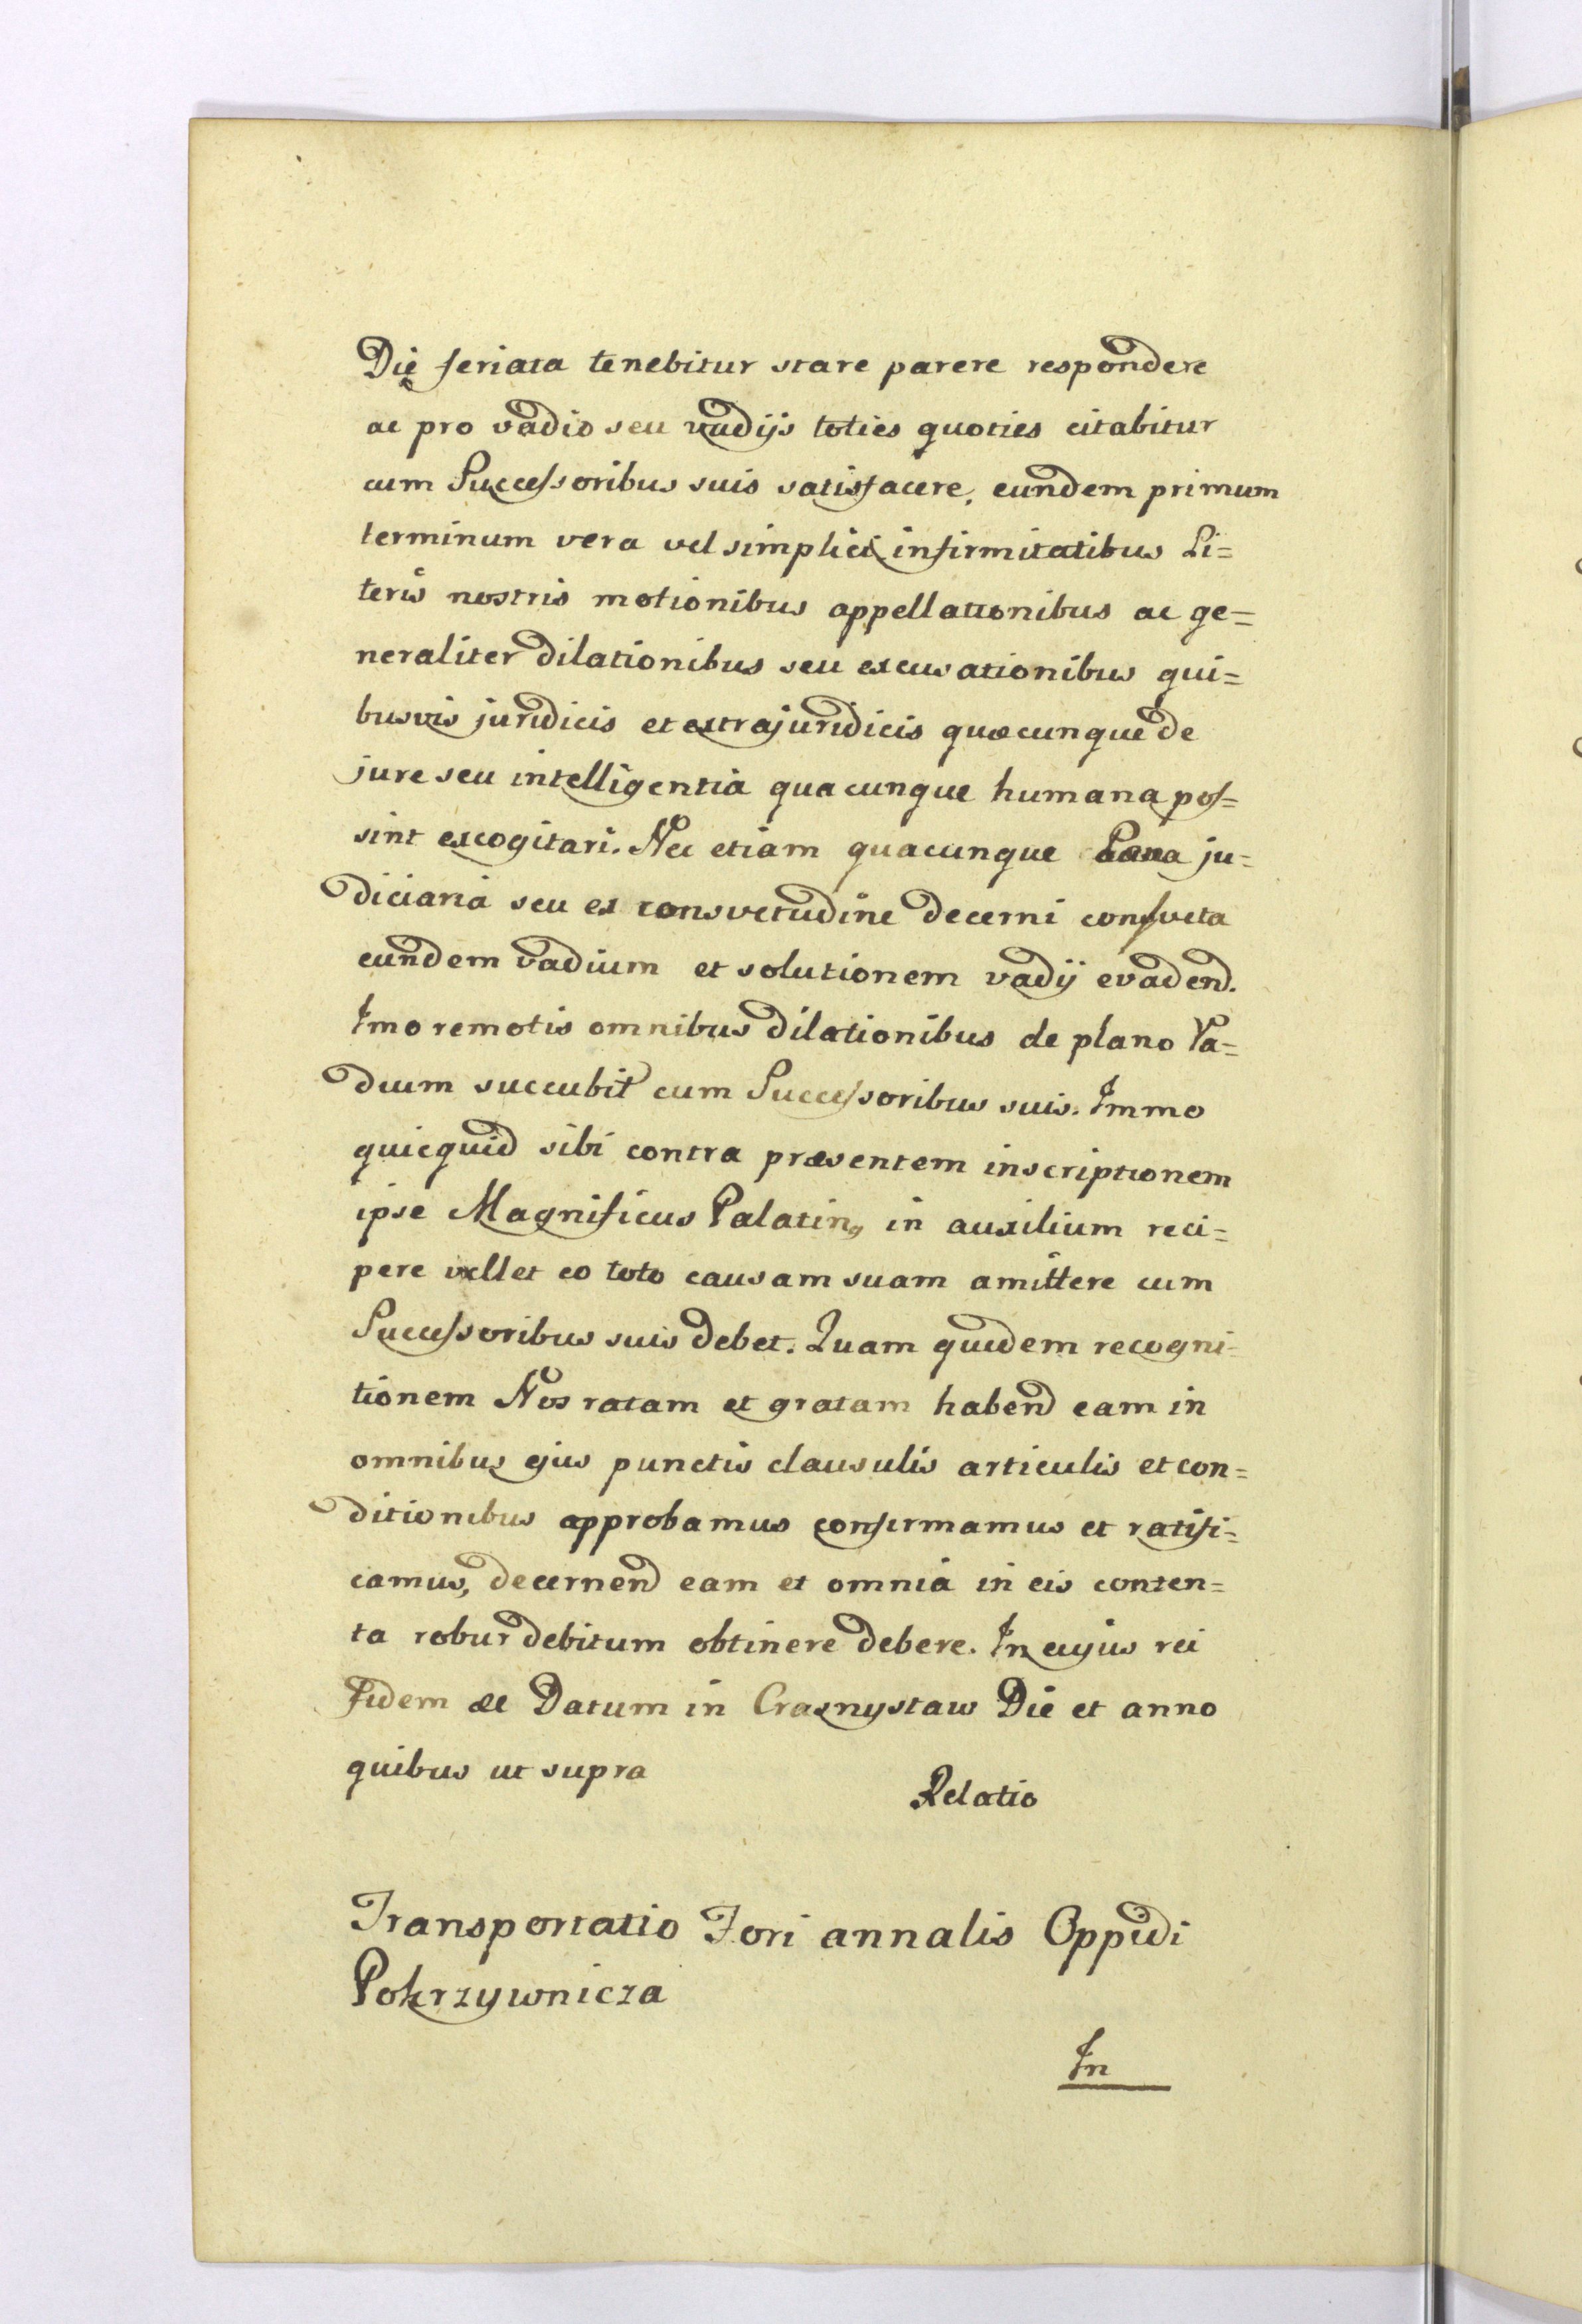 Die feriata tenebitur stare parere respondere
ac pro vadio seu vadijs toties quoties citabitur
cum Successoribus suis satisfacere, eundem primum
terminum vera vel simplici infirmitatibus Li=
teris nostris motionibus appellationibus ac ge=
neraliter dilationibus seu excusationibus qui=
busvis juridicis et extrajuridicis quæcunque de
jure seu intelligentia quacunque humana pos=
sint excogitari. Nec etiam quacunque Pæna ju=
diciaria seu ex consvetudine decerni consveta
eundem vadium et solutionem vadij evadend.
Imo remotis omnibus dilationibus de plano Va=
dium succubit cum Successoribus suis. Immo
quicquid sibi contra præsentem inscriptionem
ipse Magnificus Palatin9 in auxilium reci=
pere vellet eo toto causam suam amittere cum
Successoribus suis debet. Quam quidem recogni=
tionem Nos ratam et gratam habend eam in
omnibus ejus punctis clausulis articulis et con=
ditionibus approbamus confirmamus et ratifi=
camus, decernend eam et omnia in eis conten=
ta robur debitum obtinere debere. In cujus rei
Fidem &c Datum in Crasnystaw Die et anno
quibus ut supra
Relatio
Transportatio Fori annalis Oppidi
Pokrzywnicza
In